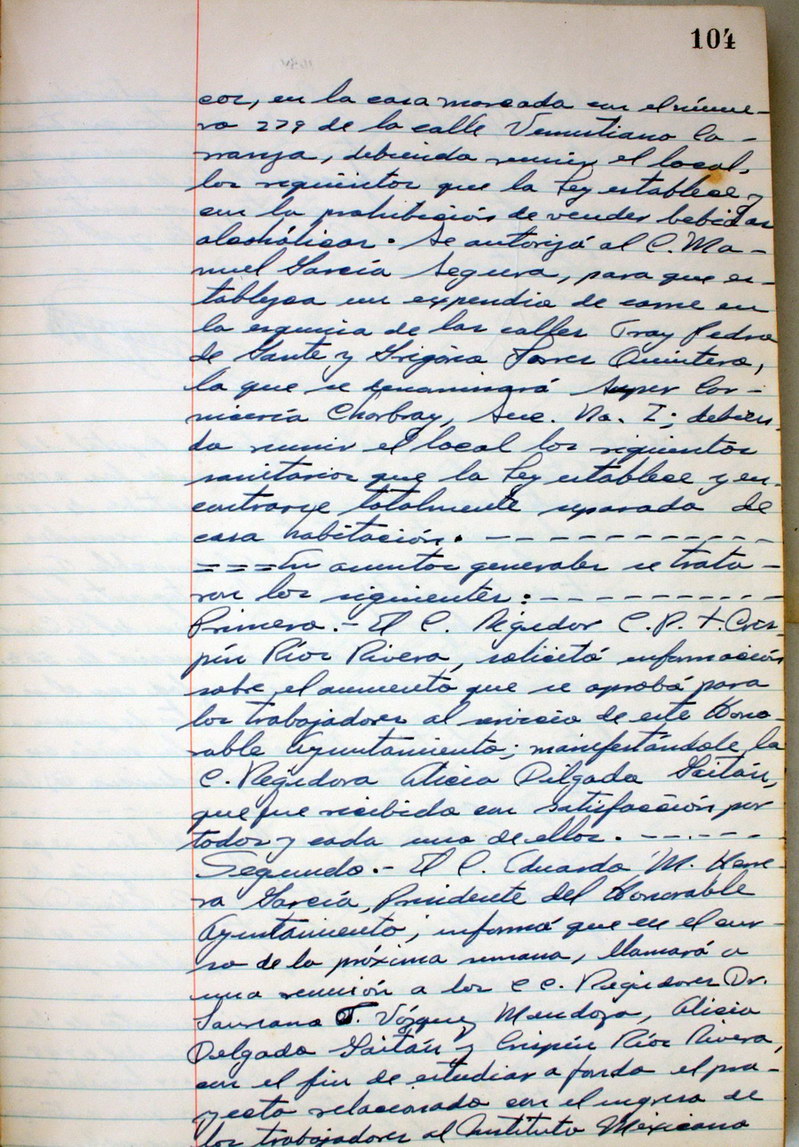 104
cos, en la casa marcada con el núme-
ro 279 de la calle Venustiano Ca-
rranza, debiendo reunir el local,
los requisitos que la Ley establece y
con la prohibición de vender bebidas
alcohólicas. Se autorizó al C. Ma-
nuel García Segura, para que es-
tablezca un expendio de carne en
la esquina de las calles Fray Pedro
de Gante y Gregorio Torres Quintero,
la que se denominará Super Car-
nicería Charbray, Suc. No. I; debien-
do reunir el local los requisitos
sanitarios que la Ley establece y en-
contrarse totalmente separada de
casa habitación. - - - - - - - - - - -
===En asuntos generales se trata-
ron los siguientes: - - - - - - - - -
Primero.- El C. Regidor C.P. T. Cris-
pín Ríos Rivera, solicitó información
sobre el aumento que se aprobó para
los trabajadores al servicio de este Hono-
rable Ayuntamiento; manifestándole la
C. Regidora Alicia Delgado Gaitán,
que fue recibido con satisfacción por
todos y cada uno de ellos. - - - - - -
Segundo.- El C. Eduardo M. Herre-
ra García, Presidente del Honorable
Ayuntamiento; informó que en el cur-
so de la próxima semana, llamará a
una reunión a los CC. Regidores Dr.
J. Vázquez Mendoza, Alicia
Delgado Gaitán y Crispín Ríos Rivera,
con el fin de estudiar a fondo el pro-
yecto relacionado con el ingreso de
los trabajadores al Instituto Mexicano